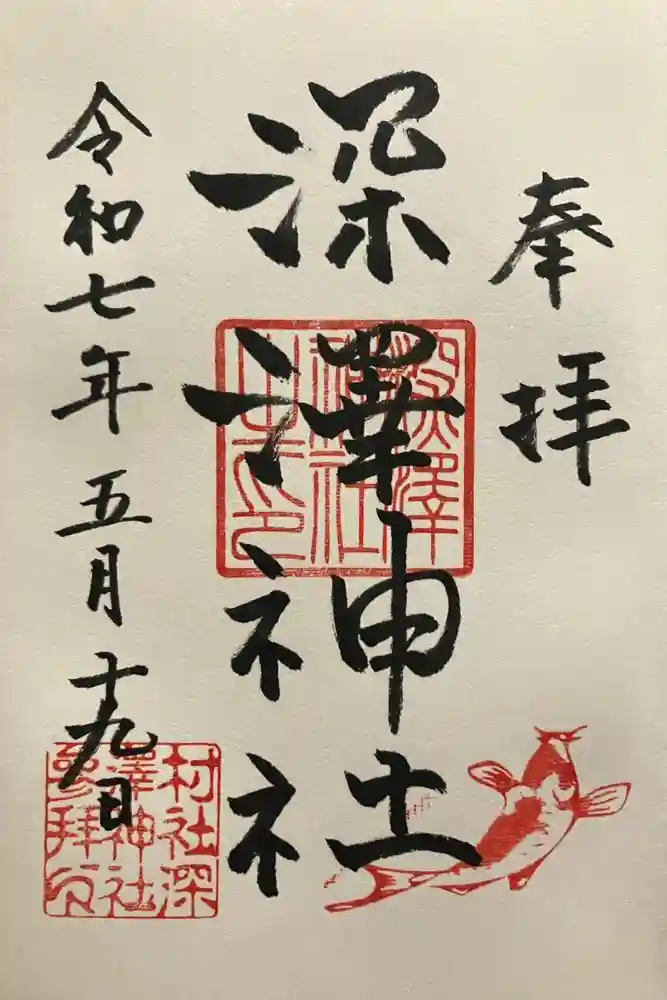 奉拝
深澤神社
令和七年五月十九日
深澤神社之印
村社深澤神社参拝印